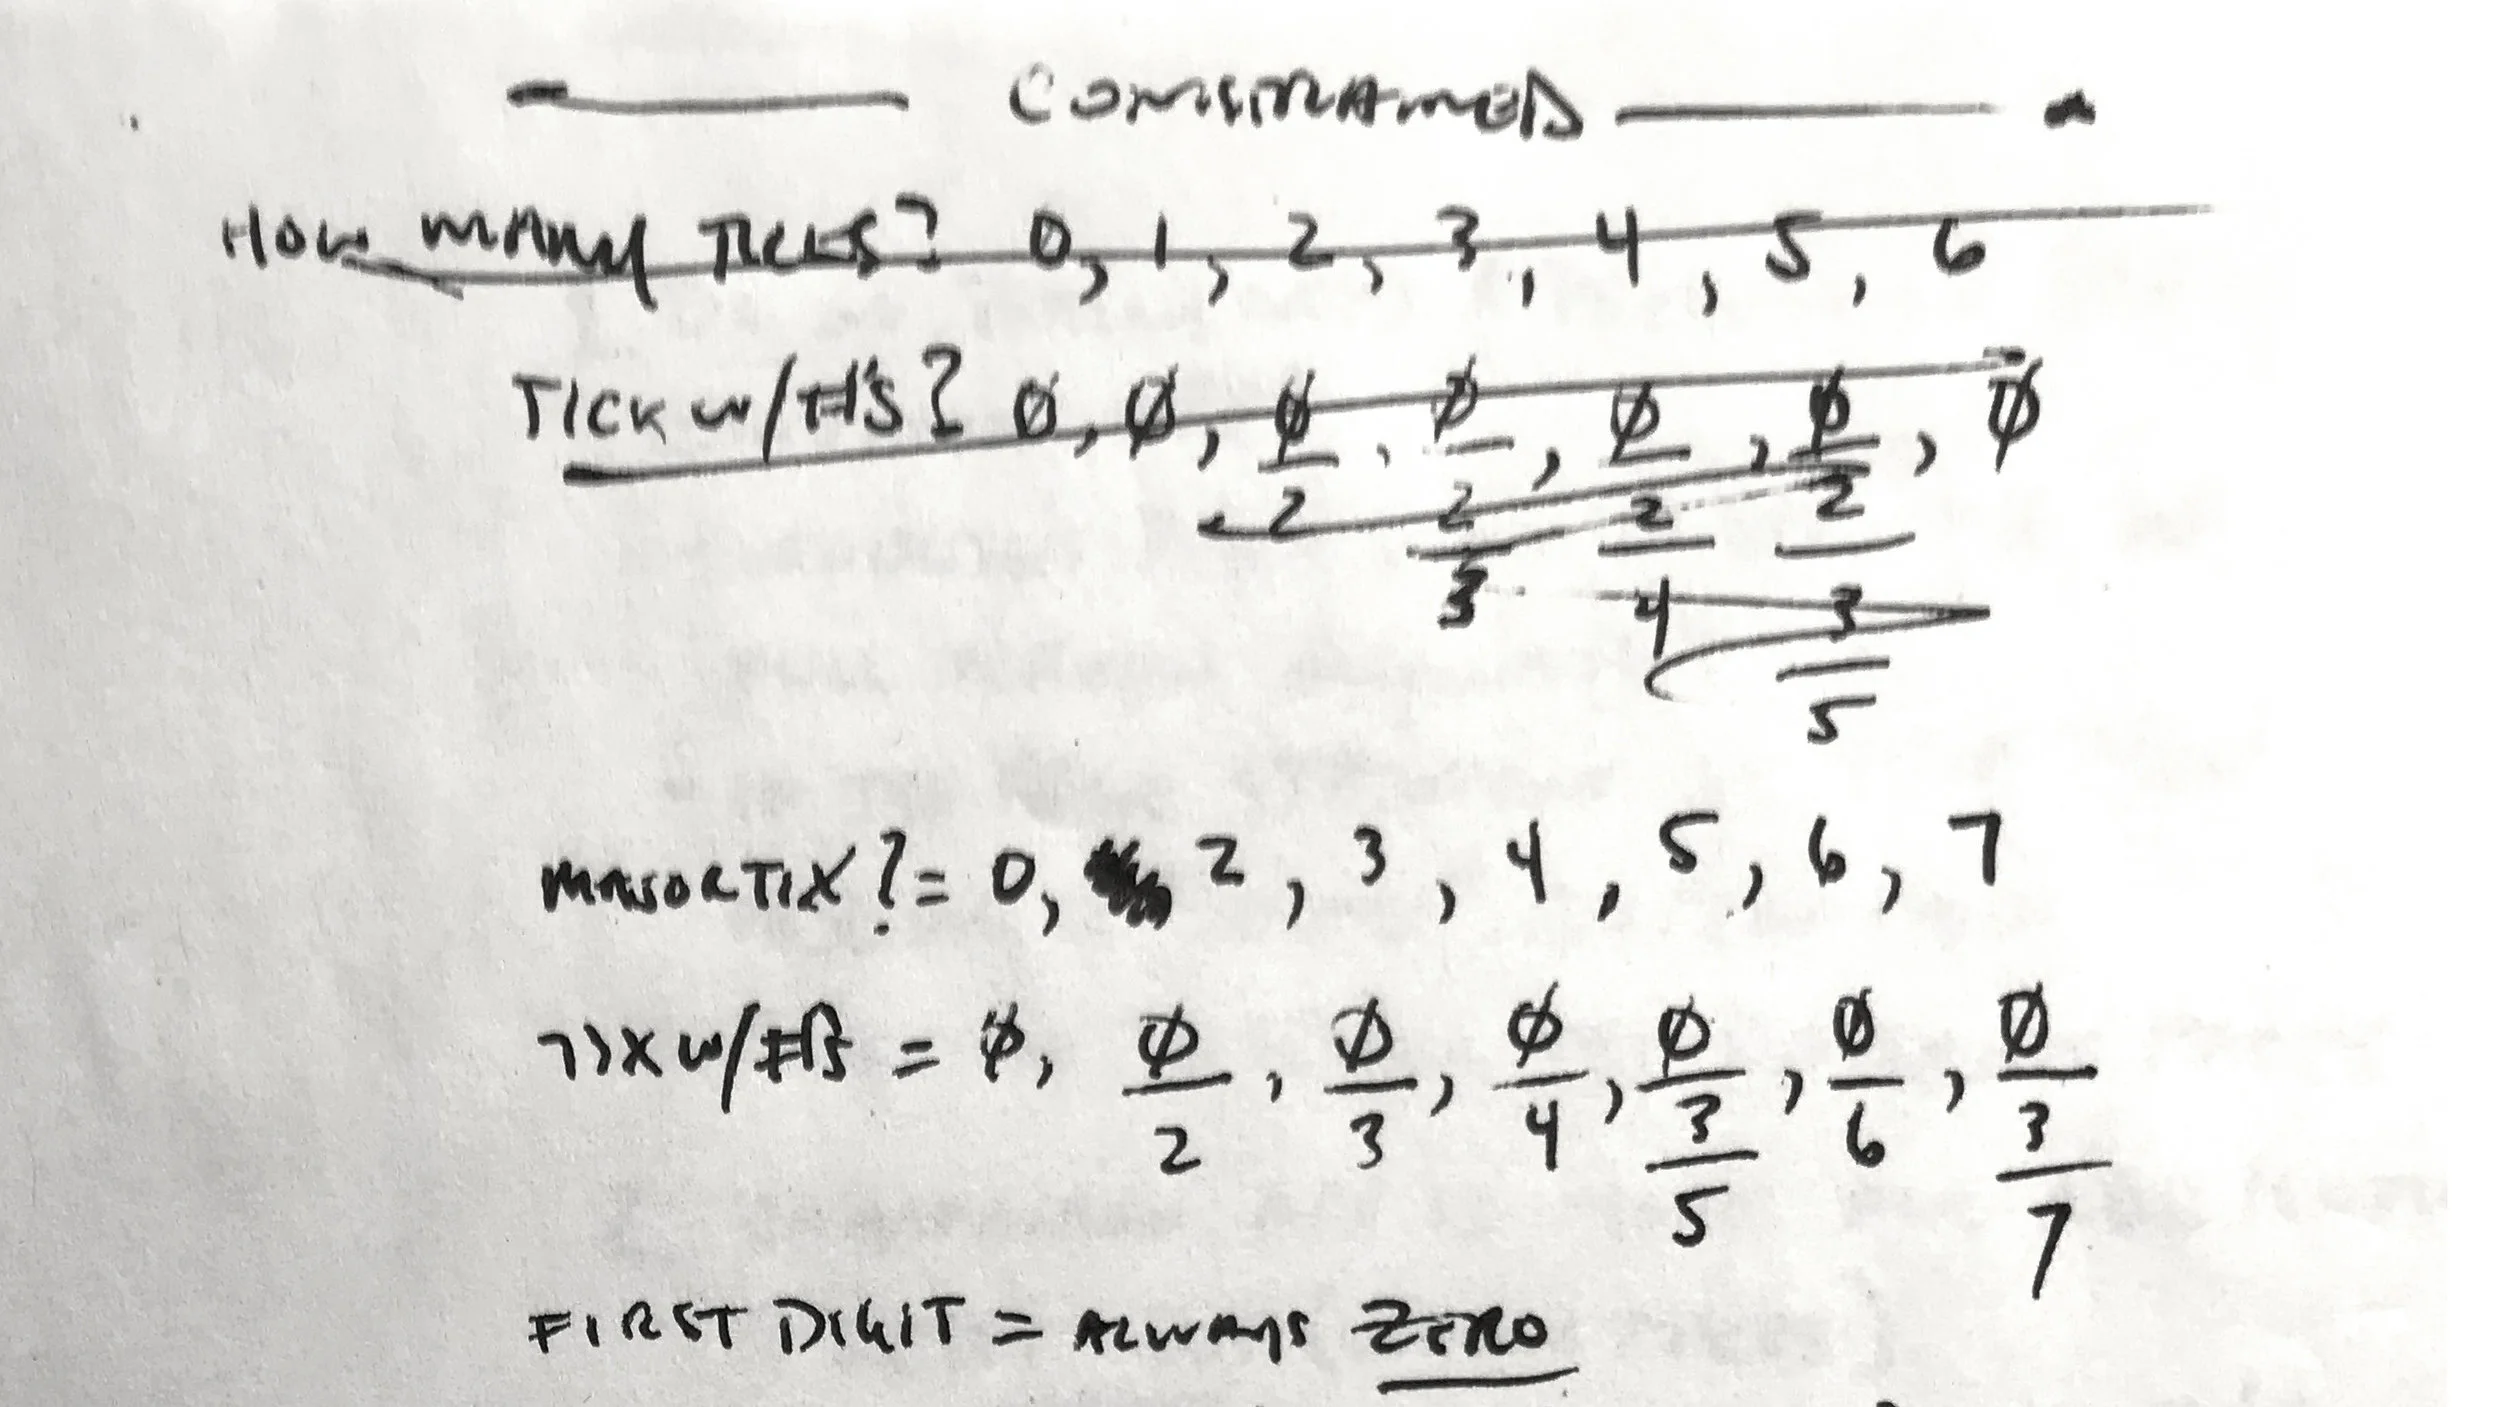 CONSTRAINED
HOW MANY TICKS? 0, 1, 2, 3, 4, 5, 6
TICK W/ #'S? Ø, Ø, Ø, Ø, Ø, Ø, Ø
2 2 2 2
3 4 3
5
MAJOR TIX? = 0, 2, 3, 4, 5, 6, 7
TIX W/ #'S = Ø, Ø, Ø, Ø, Ø, Ø, Ø
2 3 4 3 6 3
5 7
FIRST DIGIT = ALWAYS ZERO